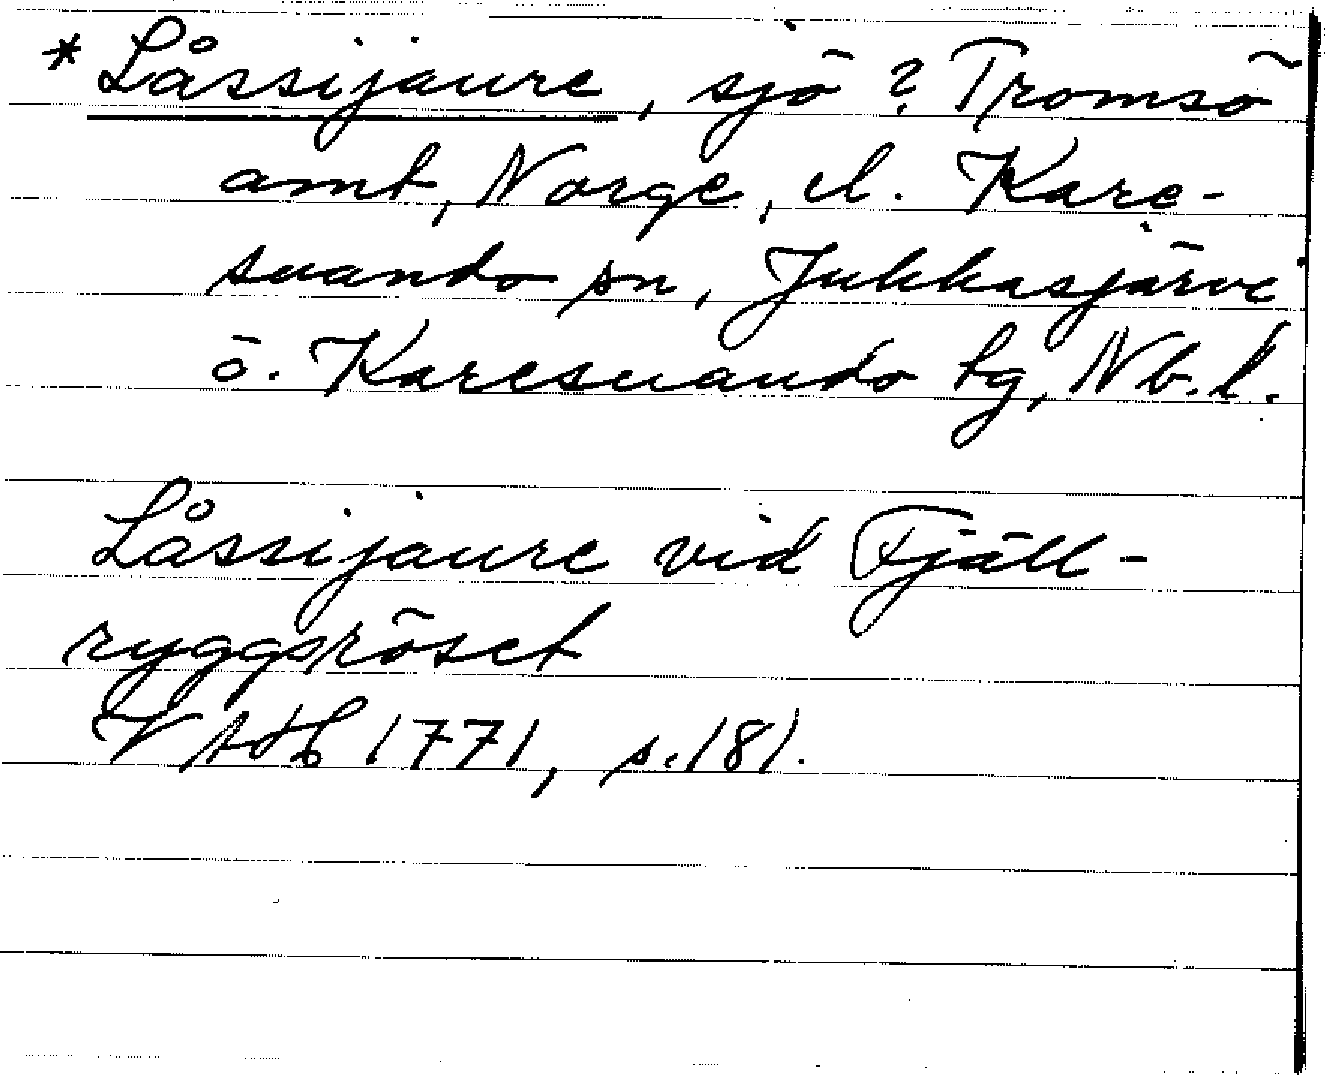 * Låssijaure, sjö? Tromsö
amt, Norge, el. Kare-
suando sn, Jukkasjärvi
o. Karesuando tg, Nb. l.
Låssijaure vid Fjäll-
ryggsröset
VAH 1771, s. 181.